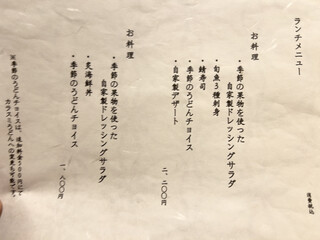 ランチメニュー
お料理
・季節の果物を使った
自家製ドレッシングサラダ
・旬魚3種刺身
・鯖寿司
・季節のうどんチョイス
・自家製デザート
二、二〇〇円
お料理
・季節の果物を使った
自家製ドレッシングサラダ
・炙海鮮丼
・季節のうどんチョイス
一、八〇〇円
※季節のうどんチョイスは、追加料金500円にて
カラスミうどんへの変更も可能です。